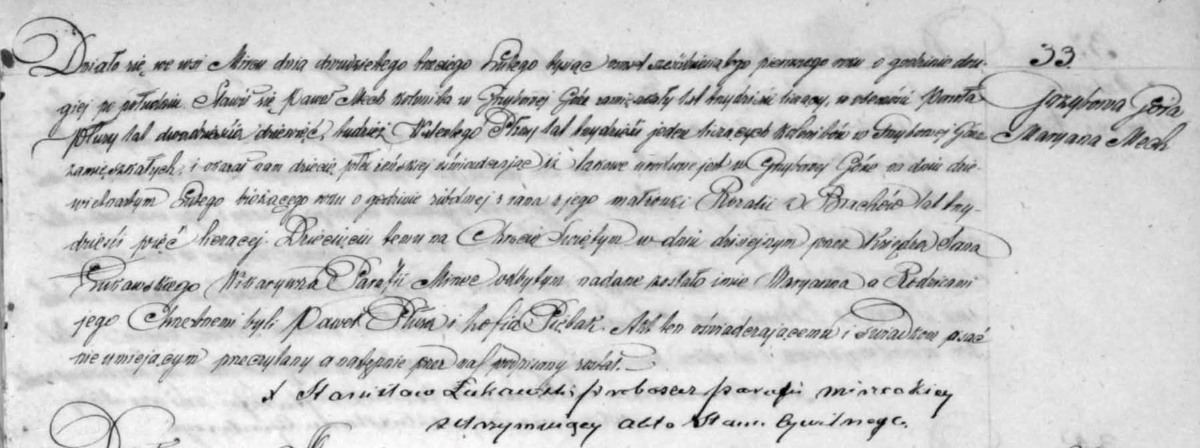 Działo się we wsi Mircu dnia dwudziestego trzeciego Lutego tysiąc ośmset sześćdziesiątego pierwszego roku o godzinie dru-
giej po południu Stawił się Paweł Mech kolonista w Grzybowej Górze zamięszkały lat trzydzieści liczący, w obecności Pawła
Pluty lat dwadzieścia dziewięć, tudzież Walentego Pluty lat trzydzieści jeden liczących kolonistów w Grzybowej Górze
zamięszkałych, i okazał nam dziecię płci żeńskiej oświadczając iż takowe urodzone jest w Grzybowy Górze na dniu dzie-
więtnastym Lutego bieżącego roku o godzinie siódmej z rana z jego małżonki Rozalii z lat trzy-
dzieści pięć liczącej. Dziecięciu temu na Chrzcie Świętym w dniu dzisiejszym przez Księdza Jana
Łukawskiego Wikaryusza Parafii Mirzec odbytym nadane zostało imie Maryanna a Rodzicami
jego Chrzestnemi byli Paweł Pluta i Zofia Akt ten oświadczającemu i Świadkom pisać
nieumiejącym przeczytany a następnie przez nas podpisany został.
X Stanisław Łukawski proboszcz parafii mirzeckiey
utrzymuiący akta Stanu Cywilnego.
33.
Grzybowa Góra
Maryana Mech